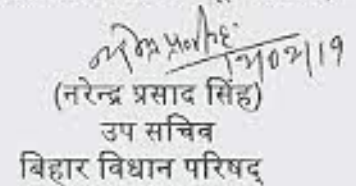 12/02/19
(नरेन्द्र प्रसाद सिंह)
उप सचिव
बिहार विधान परिषद्